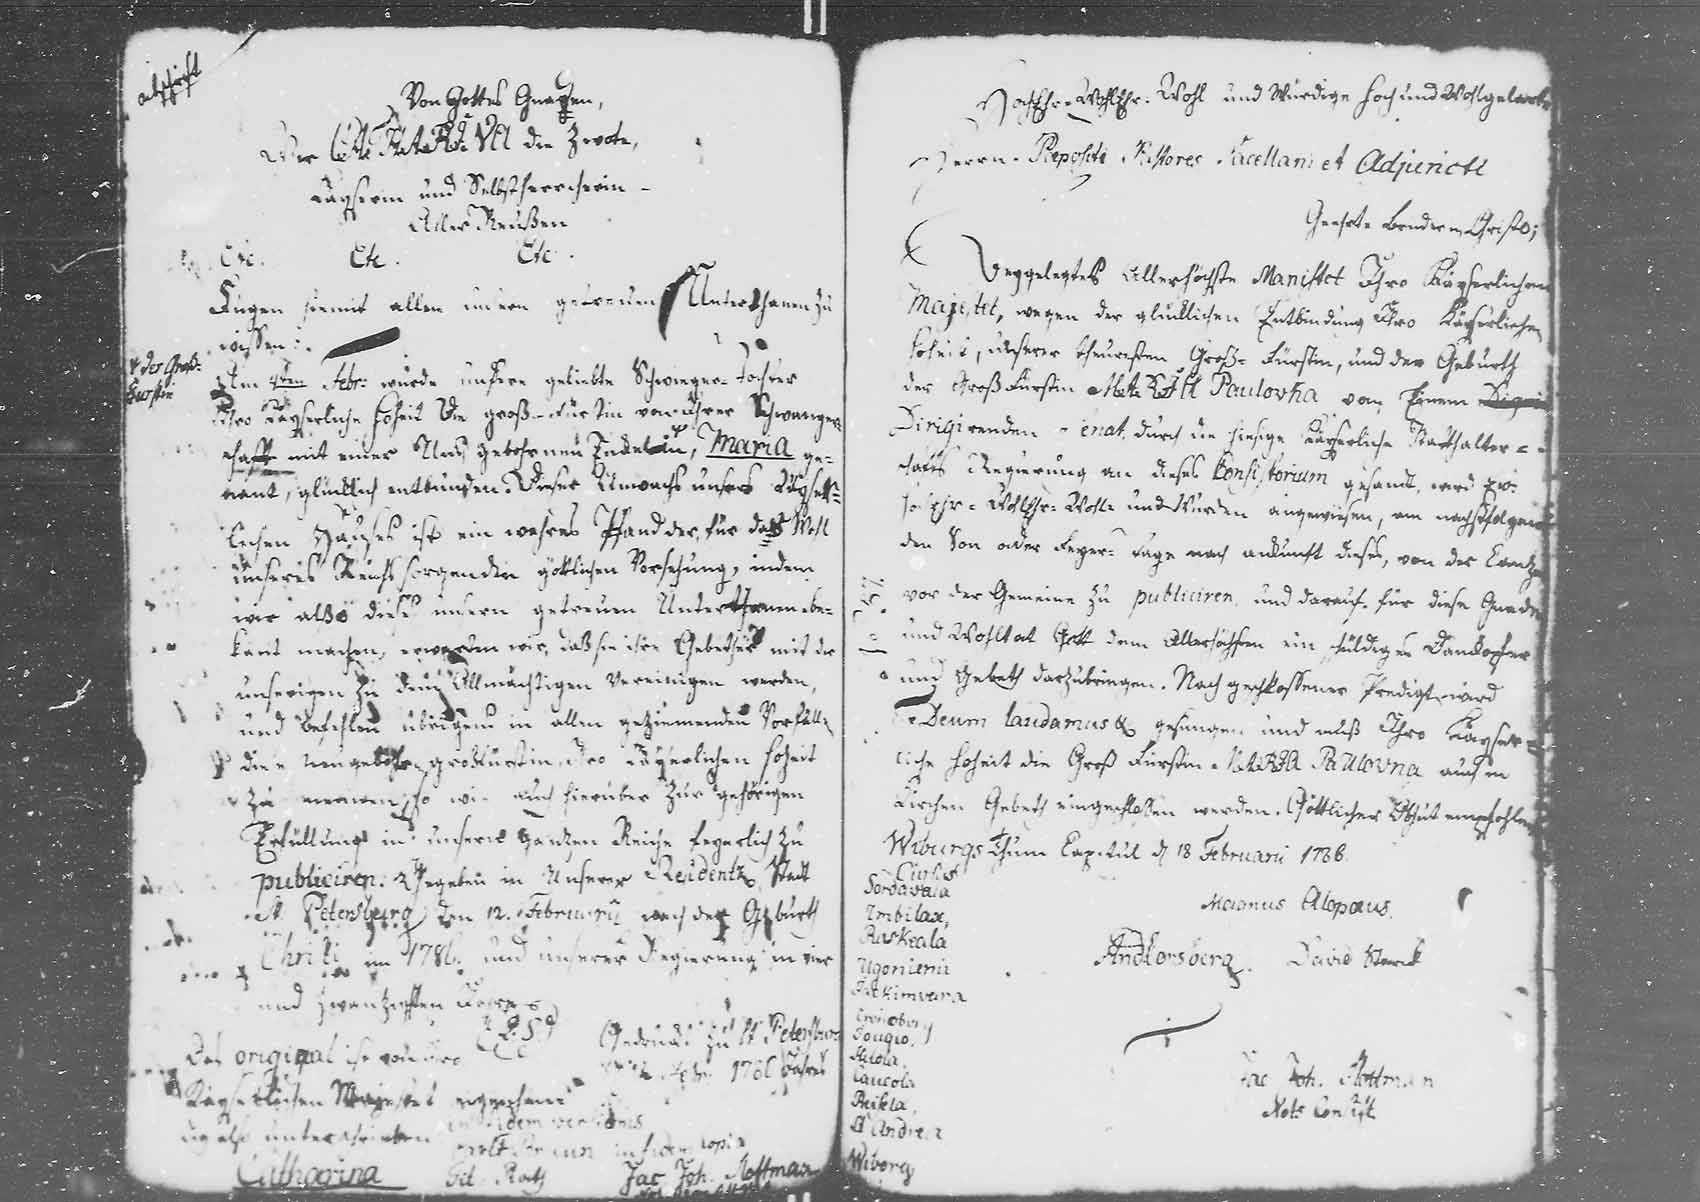 Abschrift
Von Gottes Gnaden,
Wir CATHARINA die Zwote,
Kayserin und Selbstherrscherin
Aller Reußen
Etc. Etc. Etc.
Fügen hiemit allen unsern getreuen Unterthanen zu
wissen:
* der Groß-
Fürstin
Am 4ten Febr: wurde unsere geliebte Schwieger-Tochter
Ihro Kayserliche Hoheit die Groß-Fürstin von Ihrer Schwanger-
schafft mit einer Uns gebohrnen Enckelin, Maria ge-
nant, glücklich entbunden. Dieser Anwachs unsers Kayser-
lichen Hauses ist ein wahres Pfand der für das Wohl
unseres Reichs sorgenden göttlichen Vorsehung, indem
wir also dieses unsern getreuen Unterthanen be-
kant machen, erwarten wir, daß sie ihre Gebether mit der
unserigen zu dem Allmächtigen vereinigen werden,
und befehlen übrigens in allen geziemenden Vorfällen
die neugebohrne Großfürstin Ihro Kayserlichen Hoheit
zu nennen, so wie auch hierüber zur gehörigen
Erfüllung in unserm gantzen Reiche feyerlich zu
publiciren. Gegeben in Unserer Residentz Stadt
St. Petersburg den 12. Februarii nach der Geburth
Christi im 1786. und unserer Regierung in vier
und zwantzigsten Jahre
L. S.
Das original ist von Ihro
Kayserlichen Majestet eigenhän
dig also unterschrieben
Catharina
Gedruckt zu St. Petersburg
Febr. 1786 Jahres
Jac. Joh. Hoffman
Hochehr- Wohlehr- Wohl und Würdige Hoch und Wohlgelarte
Herrn Præpositi Pastores Sacellani et Adjuncti
Geehrte Brüder in Christo;
Beygelegtes Allerhöchste Manifest Ihro Kayserlichen
Majestet, wegen der glücklichen Entbindung Ihro Kayserlichen
Hoheit, unserer theuresten Groß-Fürstin, und der Geburth
der Groß Fürstin MARIA Paulovna von Einem
Dirigirenden Senat, durch die hiesige Kayserliche Statthalter-
schafts Regierung an dieses Consistorium gesandt, wird Ew:
Hochehr- Wohlehr- Wohl- und Würden angewiesen, am nächstfolgen
den Son oder Feyer-tage nach ankunft dieses, von der Cantzel
vor der Gemeine zu publiciren, und darauf für diese Gnade
und Wohltat Gott dem Allerhöchsten ein schuldiges Danckopfer
und Gebeth darzubringen. Nach geschlossener Predigt wird
Te Deum laudamus etc gesungen und muß Ihro Kayser-
liche Hoheit die Groß Fürstin MARIA PAULOVNA auch in
Kirchen Gebeth eingeschlossen werden. Göttlicher Obhut empfohlen
Wiburgs Thum Capitul d. 18 Februarii 1786.
Magnus Alopæus.
And. Orsberg. David Starck
Jac. Joh. Hoffman
Nots Consist
Sordavala
Imbilax,
Ruskeala
Ugoniemi
Jackimvara
Cronoborg
Jougio.
Hitola
Caucola
Reisela,
St Andrea
Wiborg